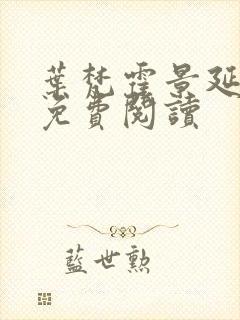 葉梵霆景延
免費閱讀
藍世勲